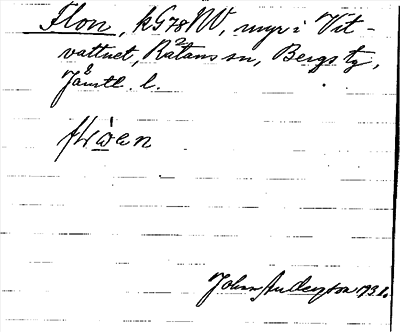 Flon, kG78NV, myr i Vit-
vattnet, Rätans sn, Bergs tg,
Jämtl. l.
flɷ̀en
Johan Anderzon 1931.